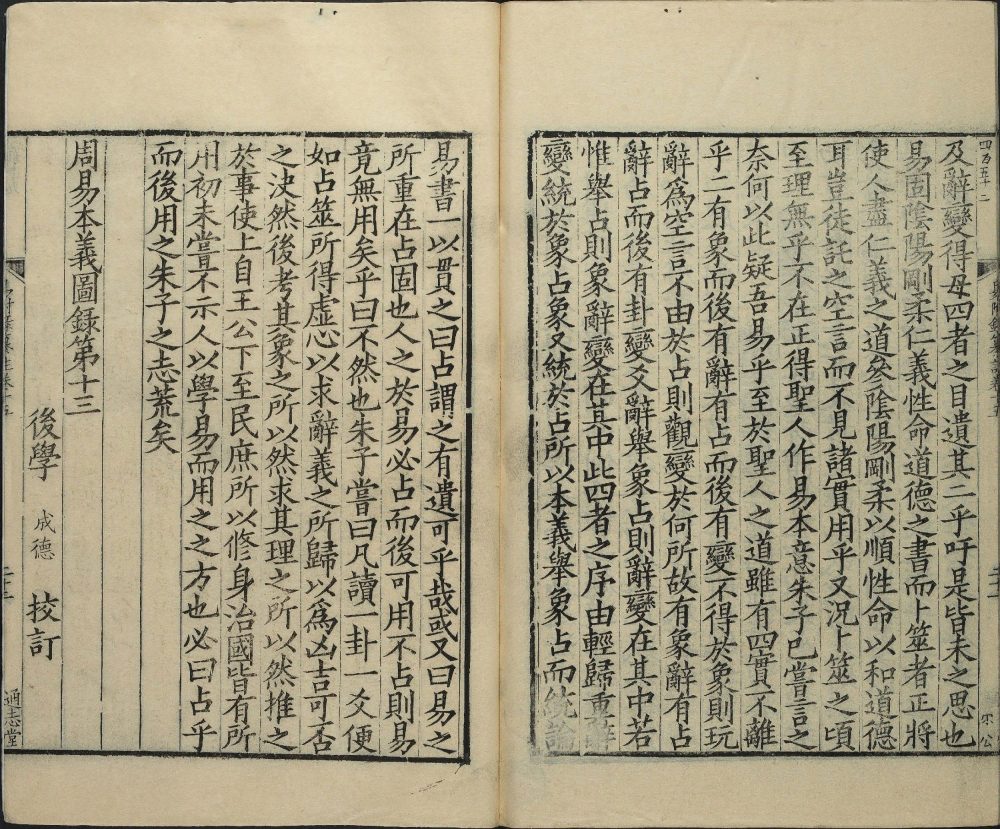 四百五十二
及辭變得毋四者之目遺其二乎吁是皆未之思也
易固陰陽剛柔仁義性命道德之書而卜筮者正將
使人盡仁義之道矣陰陽剛柔以順性命以和道德
耳豈徒託之空言而不見諸實用乎又況卜筮之頃
至理無乎不在正得聖人作易本意朱子已嘗言之
柰何以此疑吾易乎至於聖人之道雖有四實不離
乎二有象而後有辭有占而後有變不得於象則玩
辭爲空言不由於占則觀變於何所故有象辭有占
辭占而後有卦變爻辭舉象占則辭變在其中若
惟舉占則象辭變在其中此四者之序由輕歸重辭
變統於象占象又統於占所以本義舉象占而統論
易書一以貫之曰占謂之有遺可乎哉或又曰易之
所重在占固也人之於易必占而後可用不占則易
竟無用矣乎曰不然也朱子嘗曰凡讀一卦一爻便
如占筮所得虛心以求辭義之所歸以爲凶吉可否
之決然後考其象之所以然求其理之所以然推之
於事使上自王公下至民庶所以修身治國皆有所
用初未嘗不示人以學易而用之之方也必曰占乎
而後用之朱子之志荒矣
周易本義圖錄第十三
後學 成德 挍訂
通志堂